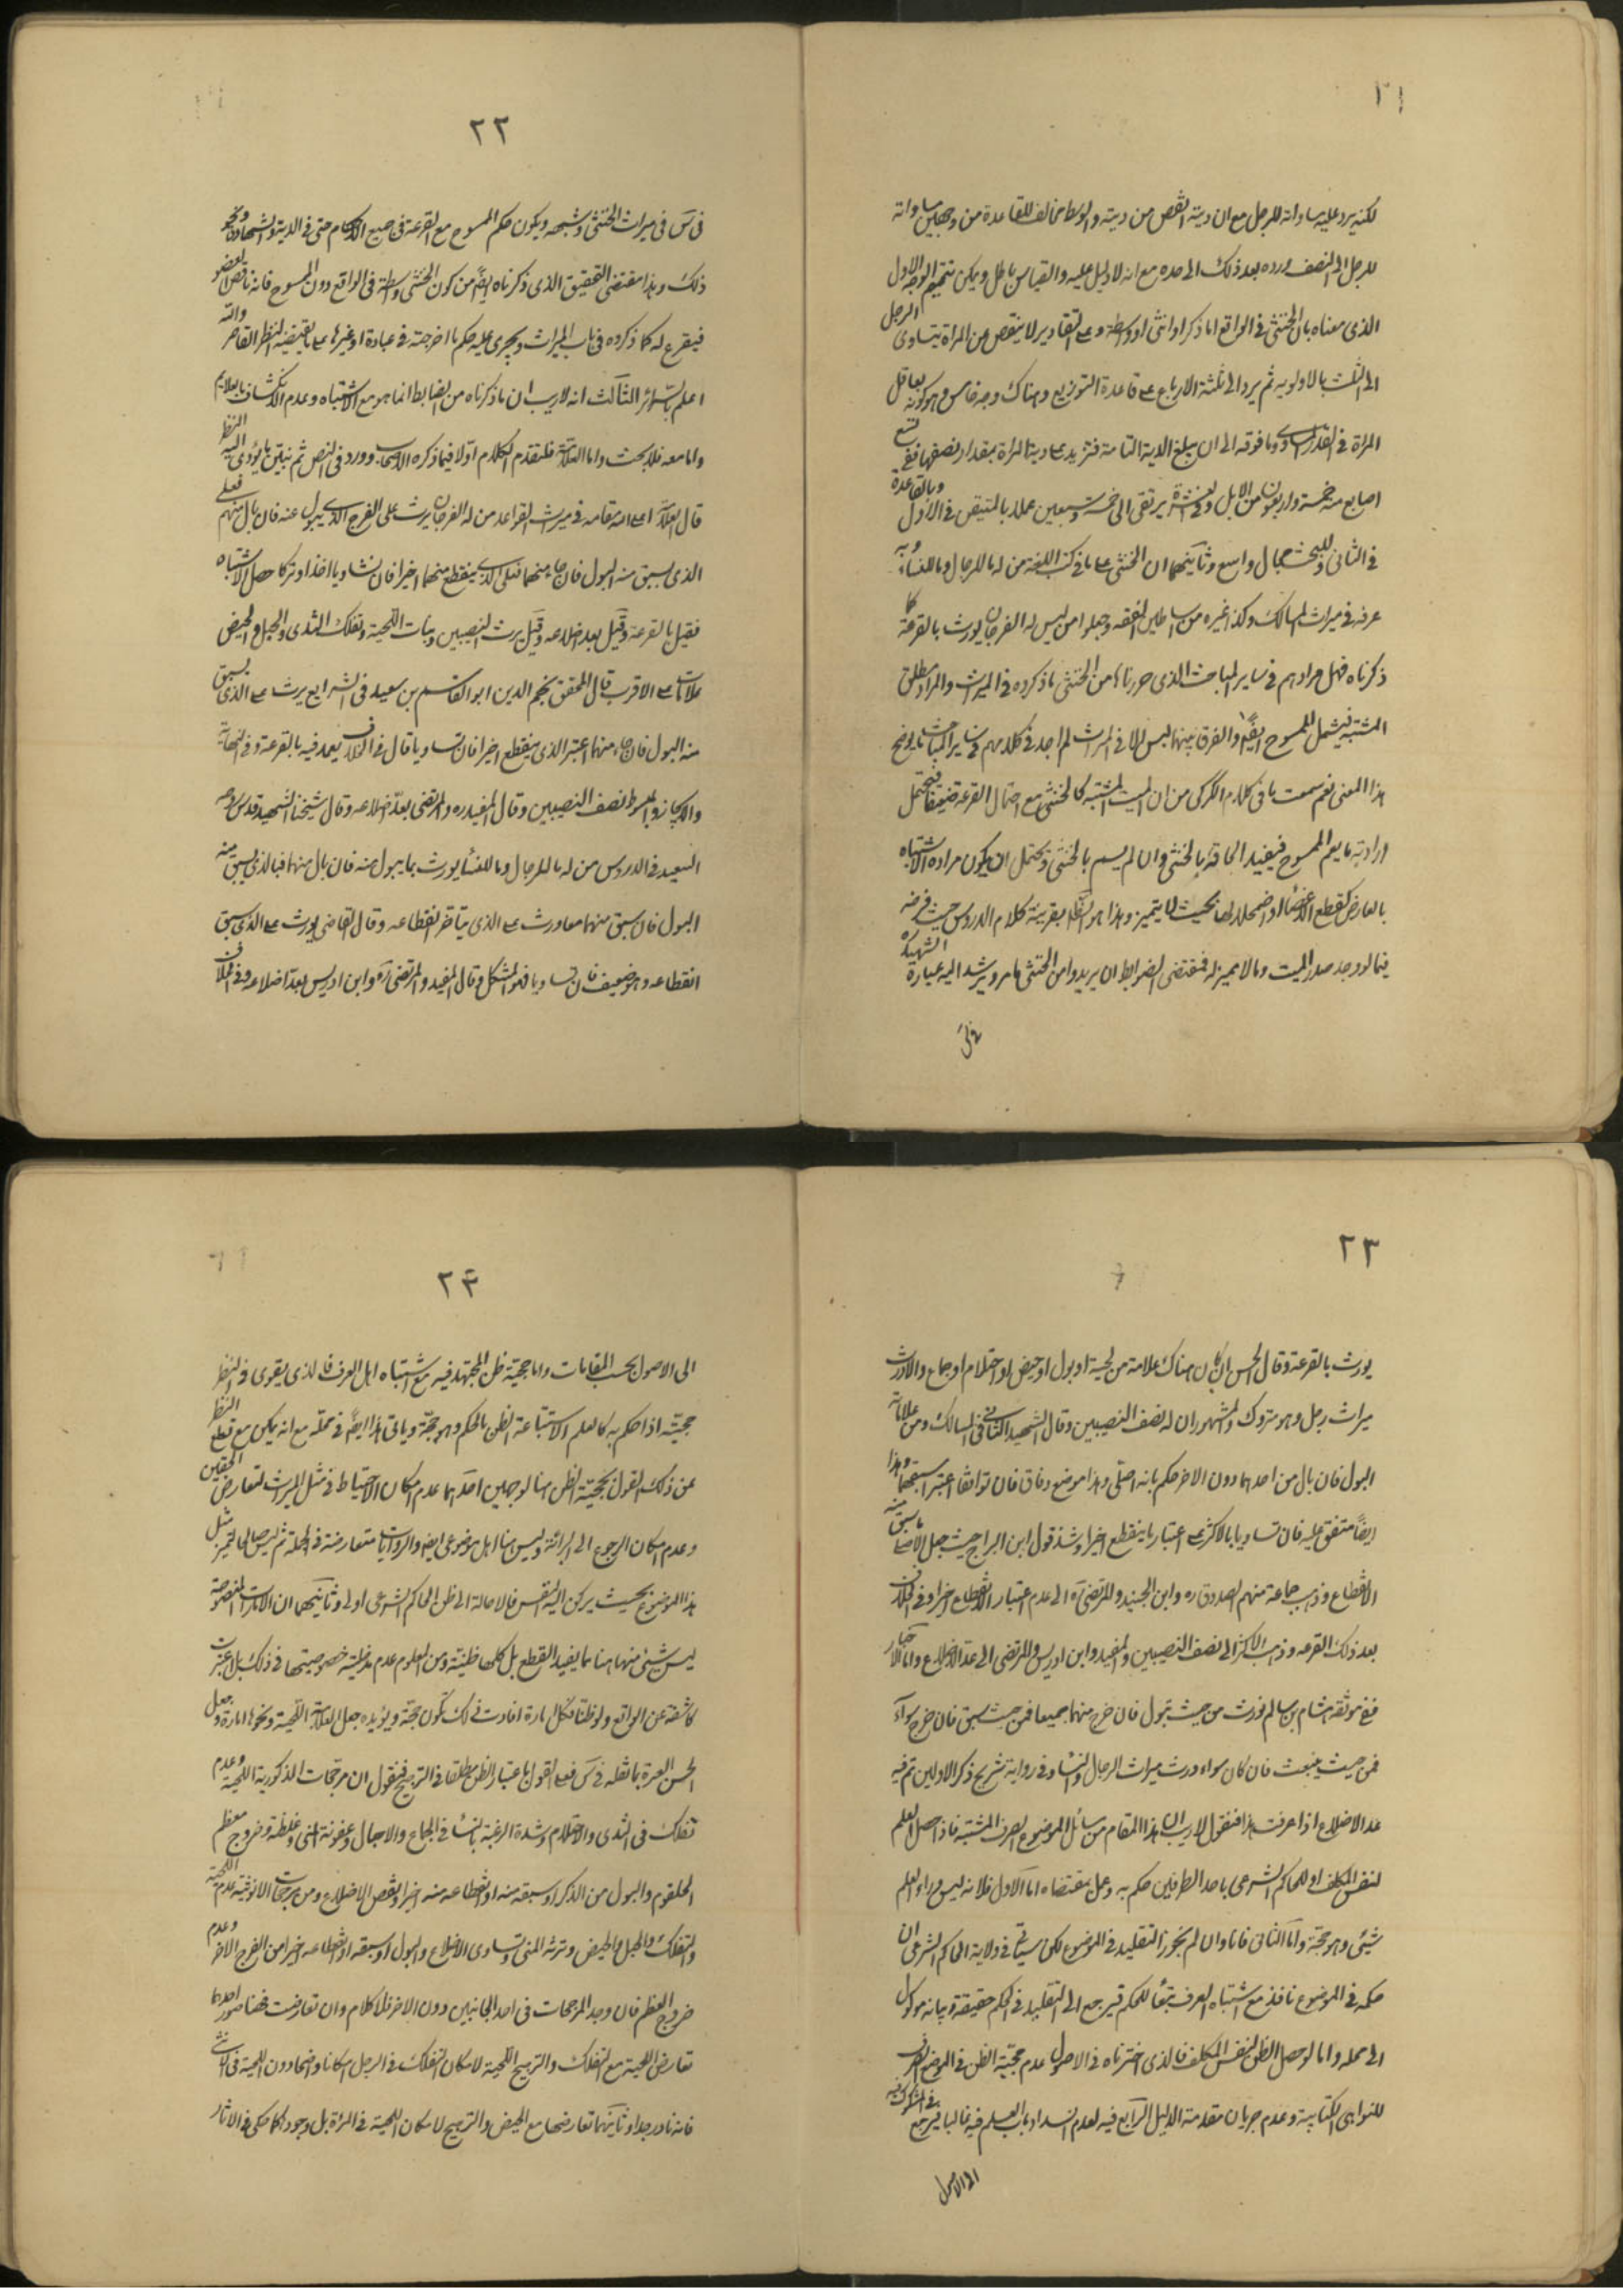 ٢١
لكنه يرد عليه مساواته للرجل مع ان ديته انقص من ديته والوسط مخالف للقاعدة من وجهين مساواته
للرجل الى النصف ورده بعد ذلك الى حده مع انه لا دليل عليه والقياس باطل ويمكن تتميم الوجه الاول
الذى معناه بان الخنثى فى الواقع اما ذكر او انثى او واسطة وعلى التقادير لا ينقص عن المراة يتساوى الرجل
الى الثلث بالاولوية ثم يرد الى ثلثة الارباع على قاعدة التوزيع وهناك وجه خامس وهو كونه يعاقل
المراة فى القدر المساوى وما فوقه الى ان يبلغ الدية التامة فتزيد على دية المراة بمقدار نصفها ففى تسع
اصابع منه خمسة واربعون من الابل وفى عشرة يرتقى الى خمسة وسبعين عملا بالمتيقن فى الاول وبالقاعدة
فى الثانى وللبحث مجال واسع وثانيهما ان الخنثى على ما فى كتب اللغة من له ما للرجال وما للنساء وبه
عرفه فى ميراث المسالك وكذا غيره من اساطين الفقه وجعلوا من ليس له الفرجان يورث بالقرعة كما
ذكرناه فهل مرادهم فى ساير المباحث الذى حررناها من الخنثى ما ذكروه فى الميراث والمراد مطلق
المشتبه فيشمل الممسوح ايضا والفرق بينهما ليس الا فى الميراث لم اجد فى كلامهم فى ساير المباحث ما يوضح
هذا المعنى نعم سمعت ما فى كلام الكركى من ان الميت المشتبه كالخنثى مع احتمال القرعة ضعيفا فيحتمل
ارادته ما يعم الممسوح فيفيد الحاقه بالخنثى وان لم يسم بالخنثى ويحتمل ان يكون مراده الاشتباه
بالعارض كقطع الاعضاء او اضمحلالها بحيث لا يتميز وهذا هو الظاهر بقرينة كلام الدروس حيث فرضه
فيما لو وجد صدر الميت وما لا مميز له فمقتضى الضوابط ان يريدوا من الخنثى ما مر ويرشد اليه عبارة الشهيد
٢٢
فى س فى ميراث الخنثى وشبهه ويكون حكم الممسوح مع القرعة فى جميع الاحكام حتى فى الدية والشهادة ونحو
ذلك وهذا مقتضى التحقيق الذى ذكرناه ايضا من كون الخنثى واسطة فى الواقع دون الممسوح فانه ناقص العضو
فيقرع له كما ذكروه فى باب الميراث ويجرى عليه حكم ما اخرجته فى عبادة او غيرها على ما يقتضيه النظر القاصر والله
اعلم بالسرائر الثالث انه لا ريب ان ما ذكرناه من الضابط انما هو مع الاشتباه وعدم الانكشاف بالعلايم
واما معه فلا بحث واما العلامة فلنقدم الكلام اولا فيما ذكره الاصحاب وورد فى النص ثم نبين ما يؤدى اليه النظر
قال العلامة اعلى الله مقامه فى ميراث القواعد من له الفرجان يرث على الفرج الذى يبول عنه فان بال منهم فعلى
الذى سبق منه البول فان جاء منهما فعلى الذى ينقطع منهما اخيرا فان تساويا اخذا وتركا حصل الاشتباه
فقيل بالقرعة وقيل بعد اضلاعه وقيل يرث النصيبين ونبات اللحية وتفلك الثدى والحبل والحيض
علامات على الاقرب قال المحقق نجم الدين ابو القاسم بن سعيد فى الشرايع يرث على الذى يسبق
منه البول فان جاء منهما اعتبر الذى ينقطع اخيرا فان تساويا قال فى الخلاف يعمل فيه بالقرعة وفى النهاية
والايجاز والمبسوط نصف النصيبين وقال المفيد ره والمرتضى بعد اضلاعه وقال شيخنا الشهيد قدس روحه
السعيد فى الدروس من له ما للرجال وما للنساء يورث بما يبول منه فان بال منهما فبالذى يسبق منه
البول فان سبق منهما معا ورث على الذى يتاخر انقطاعه وقال القاضى يورث على الذى سبق
انقطاعه وهو ضعيف فان تساويا فهو المشكل وقال المفيد والمرتضى ره وابن ادريس بعد اضلاعه وفى الخلاف
٢٣
يورث بالقرعة وقال الحسن ان كان هناك علامة من لحية او بول او حيض او احتلام او جماع والا ورث
ميراث رجل وهو متروك والمشهور ان له نصف النصيبين وقال الشهيد الثانى فى المسالك ومن علاماته
البول فان بال من احدهما دون الاخر حكم بانه اصلى وهذا موضع وفاق فان توافقا اعتبر اسبقهما وهذا
ايضا متفق عليه فان تساويا بالاكثر على اعتبار ما ينقطع اخيرا وشذ قول ابن البراج حيث جعل الاصل ما سبق منه
الانقطاع وذهب جماعة منهم الصدوق ره وابن الجنيد والمرتضى ره الى عدم اعتبار الانقطاع اخيرا وفى الخلاف
بعد ذلك القرعه وذهب الاكثر الى نصف النصيبين والمفيد وابن ادريس والمرتضى الى عد الاضلاع واما الاخبار
ففى موثقة هشام بن سالم يورث من حيث يبول فان خرج منهما جميعا فمن حيث سبق فان خرج سواء
فمن حيث ينبعث فان كان سواء ورث ميراث الرجال والنساء وفى رواية شريح ذكر الاولين ثم فيه
عد الاضلاع اذا عرفت هذا فنقول لا ريب ان هذا المقام من مسائل الموضوع الصرف المشتبه فاذا حصل العلم
لنفس المكلف او للحاكم الشرعى باحد الطرفين حكم به وعمل بمقتضاه اما الاول فلانه ليس وراء العلم
شيئى وهو حجة واما الثانى فانا وان لم نجوز التقليد فى الموضوع لكن سياتى فى ولاية الحاكم الشرعى ان
حكمه فى الموضوع نافذ مع اشتباه العرف تبعا للحكم فيرجع الى التقليد فى الحكم حقيقة وبيانه موكول
الى محله واما لو حصل الظن لنفس المكلف فالذى اخترناه فى الاصول عدم حجية الظن فى الموضوع الصرف
للنواهى الكتابية وعدم جريان مقدمة الدليل الرابع فيه لعدم انسداد باب العلم فيه غالبا فيرجع فى المشكوك فيه
الى الاصول
٢۴
الى الاصول بحسب المقامات واما حجية ظن المجتهد فيه مع اشتباه اهل العرف فالذى يقوى فى النظر
حجيته اذا حكم به كالعلم لاستتباعه الظن بالحكم وهو حجة وياتى هذا ايضا فى محله مع انه يمكن مع قطع النظر
عن ذلك القول بحجية الظن هنا لوجهين احدهما عدم امكان الاحتياط فى مثل الميراث لتعارض الحقين
وعدم امكان الرجوع الى البرائة وليس هنا اهل موضوع ايضا والروايات متعارضة فى الجملة ثم ليس حالها تميز مثل
هذا الموضوع بحيث يركن اليه النفس فالاحالة الى ظن الحاكم الشرعى اولى وثانيهما ان الامارات المنصوصة
ليس شيئى منها هنا مما يفيد القطع بل كلها ظنية ومن المعلوم عدم مدخلية خصوصيتها فى ذلك بل اعتبرت
كاشفة عن الواقع ولو ظنا فكل امارة افادت ذلك تكون حجة ويؤيده جعل العلامة اللحية ونحوها امارة وجعل
الحسن العبرة بما نقله فى س فعلى القول باعتبار الظن مطلقا فى الترجيح فنقول ان مرجحات الذكورية اللحية وعدم
تفلك فى الثدى والاحتلام وشدة الرغبة بالنساء فى الجماع والاحبال وعفونة المنى وغلظته وخروج معظم
الحلقوم والبول من الذكر او سبقه منه او انقطاعه منه اخيرا ونقص الاضلاع ومن مرجحات الانوثية عدم اللحية
والتفلك والحبل والحيض ورقة المنى وتساوى الاضلاع والبول او سبقه او انقطاعه اخيرا من الفرج الاخر وعدم
خروج العظم فان وجد المرجحات فى احد الجانبين دون الاخر فلا كلام وان تعارضت فهنا صور احدها
تعارض اللحية مع التفلك والترجيح اللحية لامكان التفلك فى الرجل امكانا واضحا دون اللحية فى الانثى
فانه نادر جدا وثانيهما تعارضها مع الحيض والترجيح لامكان اللحية فى المرئة بل وجودها كما حكى فى الاثار